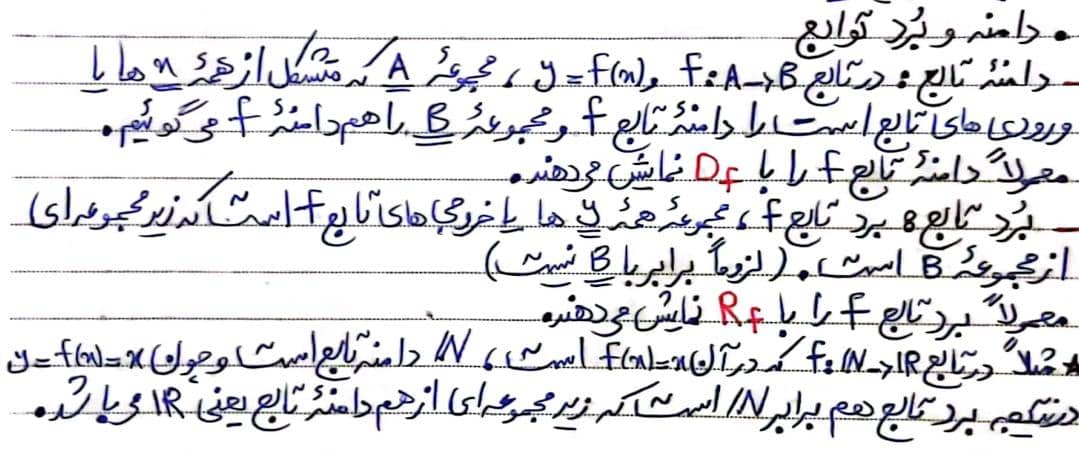 • دامنه و بُرد توابع
- دامنهٔ تابع: در تابع f: A→B و y = f(x)، مجموعهٔ A که متشکل از همهٔ x ها یا
ورودی های تابع است را دامنهٔ تابع f و مجموعهٔ B را هم دامنهٔ f می گوئیم.
معمولاً دامنهٔ تابع f را با Df نمایش می دهند.
- بُرد تابع: برد تابع f، مجموعهٔ همهٔ y ها یا خروجی های تابع f است که زیرمجموعه ای
از مجموعهٔ B است. (لزوماً برابر با B نیست)
معمولاً برد تابع f را با Rf نمایش می دهند.
* مثلاً در تابع f: ℕ→ℝ که در آن f(x)=x است، ℕ دامنه تابع است و چون y=f(x)=x
در نتیجه برد تابع هم برابر ℕ است که زیرمجموعه ای از هم دامنهٔ تابع یعنی ℝ می باشد.